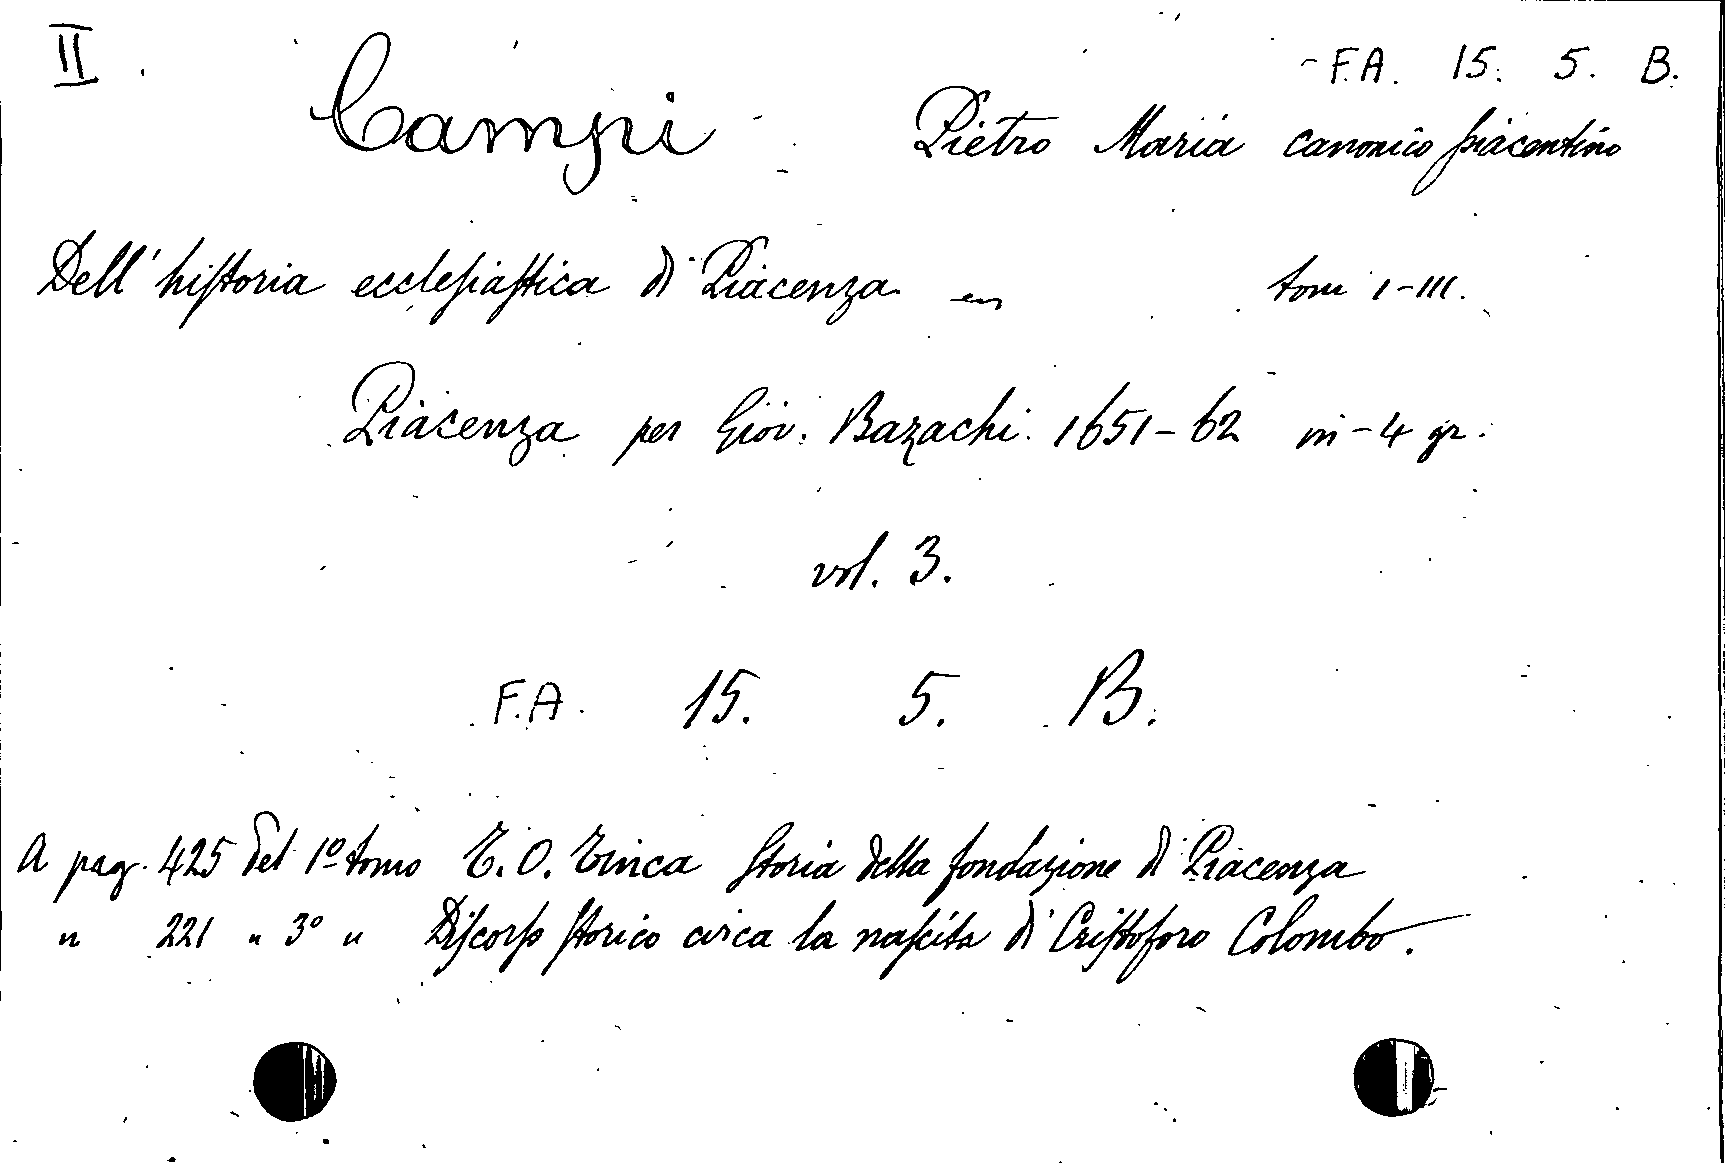 II. F.A. 15. 5. B.
Campi Pietro Maria canonico piacentino
Dell'historia ecclesiastica di Piacenza tomi I-III.
Piacenza per Giov. Bazachi 1651-62 in-4 gr.
vol. 3.
F.A. 15. 5. B.
A pag. 425 del 1º tomo T. O. Tinca Storia della fondazione di Piacenza
" 221 " 3º " Discorso storico circa la nascita di Cristoforo Colombo.